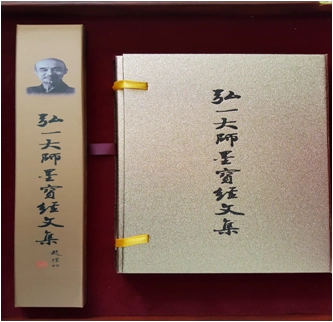 弘一大師墨寶經文集
弘一大師墨寶經文集